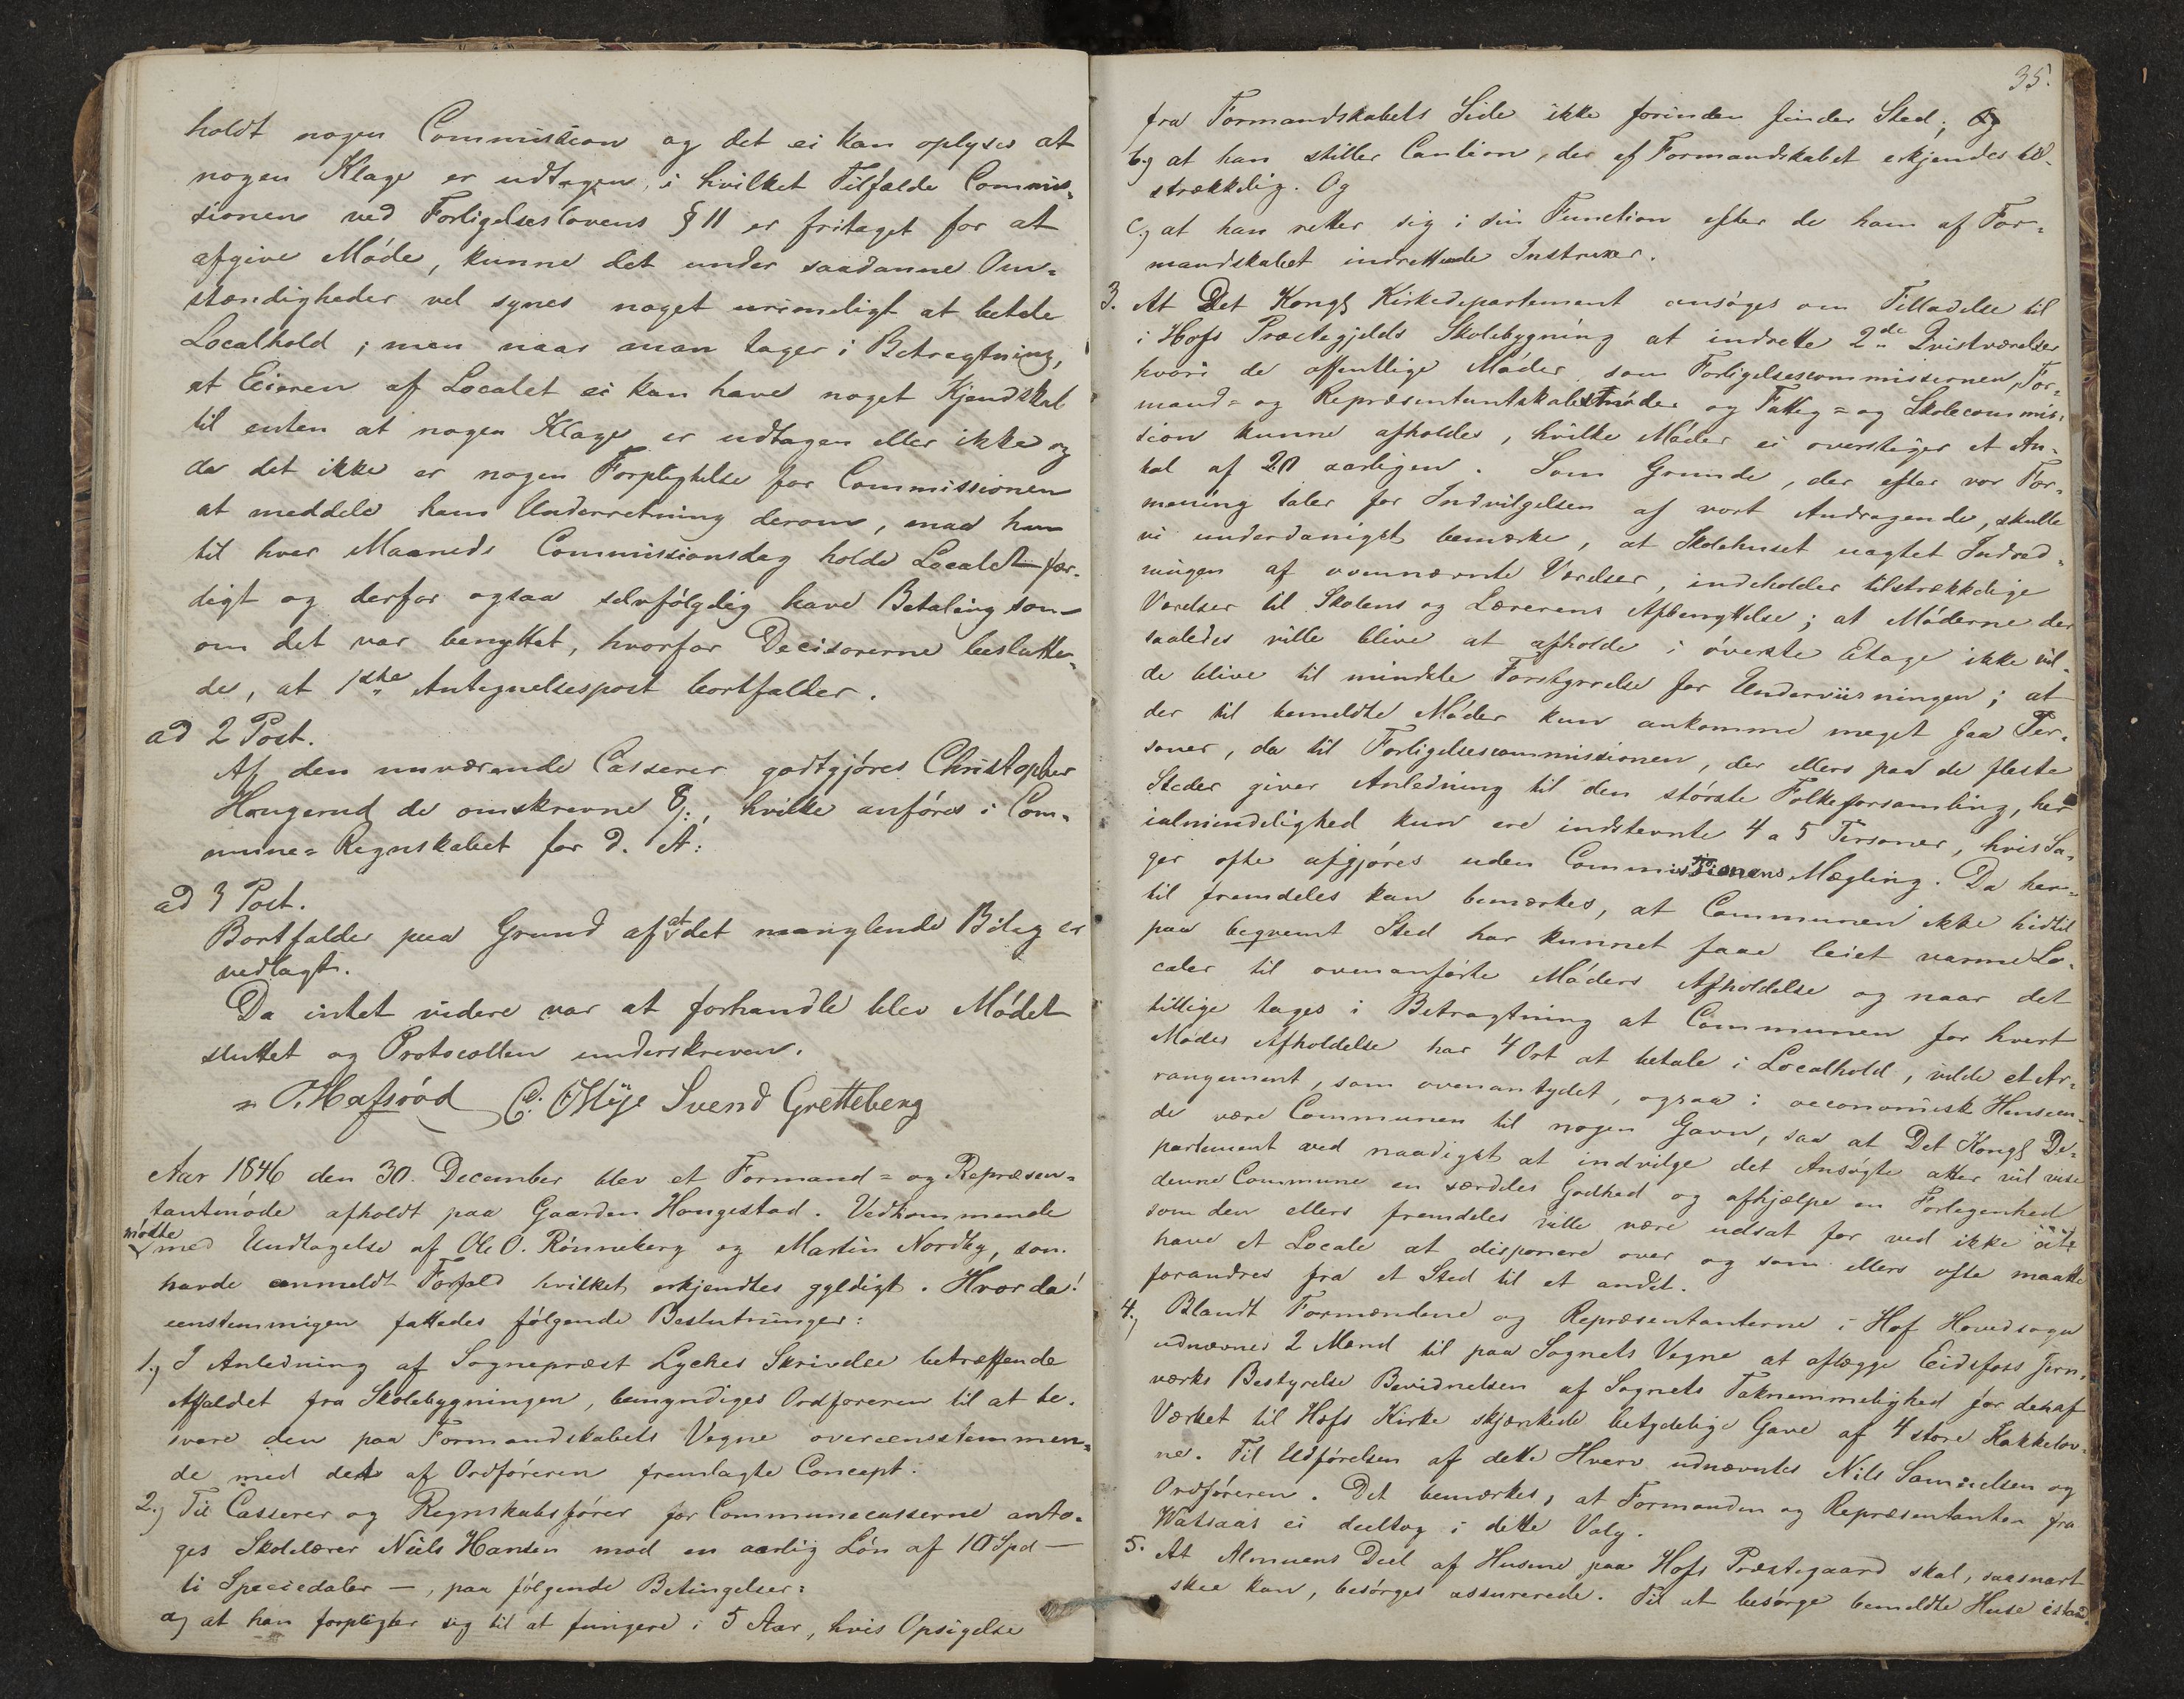 holdt nogen Commission og det ei kan oplyses at
nogen Klage er udtagen, i hvilket Tilfælde Commis=
sionen ved Forligelseslovens § 11 er fritaget for at
afgive Møde, kunne det under saadanne Om=
stændigheder vel synes noget urimeligt at betale
Localhold; men naar man tager i Betragtning,
at Eieren af Localet ei kan have noget Kjendskab
til enten at nogen Klage er udtagen eller ikke og
da det ikke er nogen Forpligtelse for Commissionen
at meddele ham Underretning derom, maa han
til hver Maaneds Commissionsdag holde Localet fær=
digt og derfor ogsaa selvfølgelig have Betaling som
om det var benyttet, hvorfor Decisorerne beslutte=
de, at 1ste Antegnelsespost bortfalder.
ad 2 Post.
Af den nuværende Casserer godtgjøres Christopher
Haugerud de omskrevne 8 /:, hvilke anføres i Com=
mune=Regnskabet for d. A:
ad 3 Post.
Bortfalder paa Grund af at det manglende Bilag er
vedlagt.
Da intet videre var at forhandle blev Mødet
sluttet og Protocollen underskreven.
O. Hafsrød C. Svend Gretteberg
Aar 1846 den 30. December blev et Formand= og Repræsen=
tantmøde afholdt paa Gaarden Haugestad. Vedkommende
mødte med Undtagelse af Ole O. Rønneberg og Martin Nordby, som
havde anmeldt Forfald hvilket erkjendtes gyldigt. Hvor da!
eenstemmigen fattedes følgende Beslutninger:
1.) I Anledning af Sognepræst Lyches Skrivelse betræffende
Affaldet fra Skolebygningen, bemyndiges Ordføreren til at be=
svare den paa Formandskabets Vegne overeensstemmen=
de med det af Ordføreren fremlagte Concept.
2.) Til Casserer og Regnskabsfører for Communecasserne anto=
ges Skolelærer Niels Hansen mod en aarlig Løn af 10 Spd —
ti Speciedaler —, paa følgende Betingelser:
a) at han forpligter sig til at fungere i 5 Aar, hvis Opsigelse
35.
fra Formandskabets Side ikke forinden finder Sted; Og
b.) at han stiller Caution, der af Formandskabet erkjendes til=
strækkelig. Og
c.) at han retter sig i sin Function efter de ham af For=
mandskabet indrettende Instruxer.
3. At Det Kongl Kirkedepartement ansøges om Tilladelse til
i Hofs Præstegjelds Skolebygning at indrette 2de Qvistværelser
hvori de offentlige Møder som Forligelsescommissionen, For=
mand= og Repræsentantskabsmøder og Fattig= og Skolecommis=
sion kunne afholdes, hvilke Møder ei overstiger et An=
tal af 20 aarligen. Som Grunde, der efter vor For=
mening taler for Indvilgelsen af vort Andragende, skulle
vi underdanigst bemærke, at Skolehuset uagtet Indred=
ningen af ovennævnte Værelser, indeholder tilstrækkelige
Værelser til Skolens og Lærerens Afbenyttelse; at Møderne der
saaledes ville blive at afholde i øverste Etage ikke vil=
de blive til mindste Forstyrrelse for Underviisningen; at
der til bemeldte Møder kun ankomme meget faa Per=
soner, da til Forligelsescommissionen, der ellers paa de fleste
Steder giver Anledning til den største Folkeforsamling, her
ialmindelighed kun ere indstevnte 4 a 5 Personer, hvis Sa=
ger ofte afgjøres uden Commissionens Mægling. Da her=
til fremdeles kan bemærkes, at Communen ikke hidtil
paa beqvemt Sted har kunnet faae leiet varme Lo=
caler til ovenanførte Møders Afholdelse og naar det
tillige tages i Betragtning at Communen for hvert
Mødes Afholdelse har 4 Ort at betale i Localhold, vilde et Ar=
rangement, som ovenantydet, ogsaa i oeconomisk Henseen=
de være Communen til nogen Gavn, saa at Det Kongl De=
partement ved naadigst at indvilge det Ansøgte atter vil vise
denne Commune en særdeles Godhed og afhjælpe en Forlegenhed
som den ellers fremdeles ville være udsat for ved ikke
have et Locale at disponere over og som ellers ofte maatte
forandres fra et Sted til et andet.
4.) Blandt Formændene og Repræsentanterne i Hof Hovedsogn
udnævnes 2 Mænd til paa Sognets Vegne at aflægge Eidsfoss Jern=
værks Bestyrelse Bevidnelsen af Sognets Taknemmelighed for den af
Værket til Hofs Kirke skjænkede betydelige Gave af 4 store Kakkelov=
ne. Til Udførelsen af dette Hverv udnævntes Nils Samuelsen og
Ordføreren. Det bemærkes, at Formanden og Repræsentanten fra
Watsaas ei deeltog i dette Valg.
5. At Almuens Deel af Husene paa Hofs Præstegaard skal, saasnart
skee kan, besørges assurerede. Til at besørge bemeldte Huse istand=